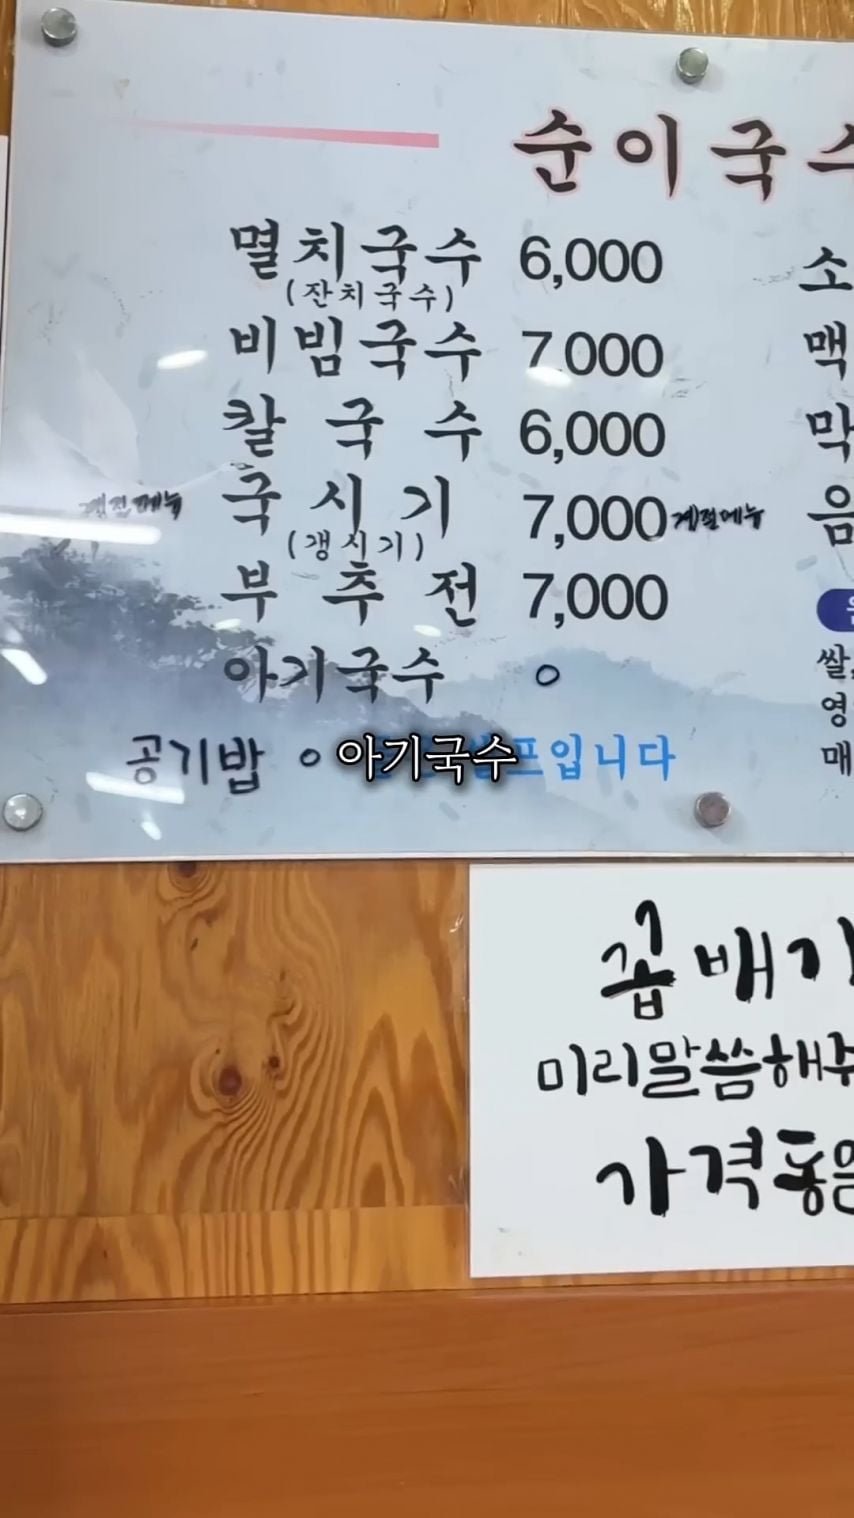 순이국수
멸치국수 6,000
(잔치국수)
비빔국수 7,000
칼국수 6,000
계절메뉴 국시기 7,000 계절메뉴
(갱시기)
부추전 7,000
아기국수 0
공기밥 0
아기국수
입니다
소
맥
막
음
쌀,
영
매
곱배기
미리말씀해주
가격동일